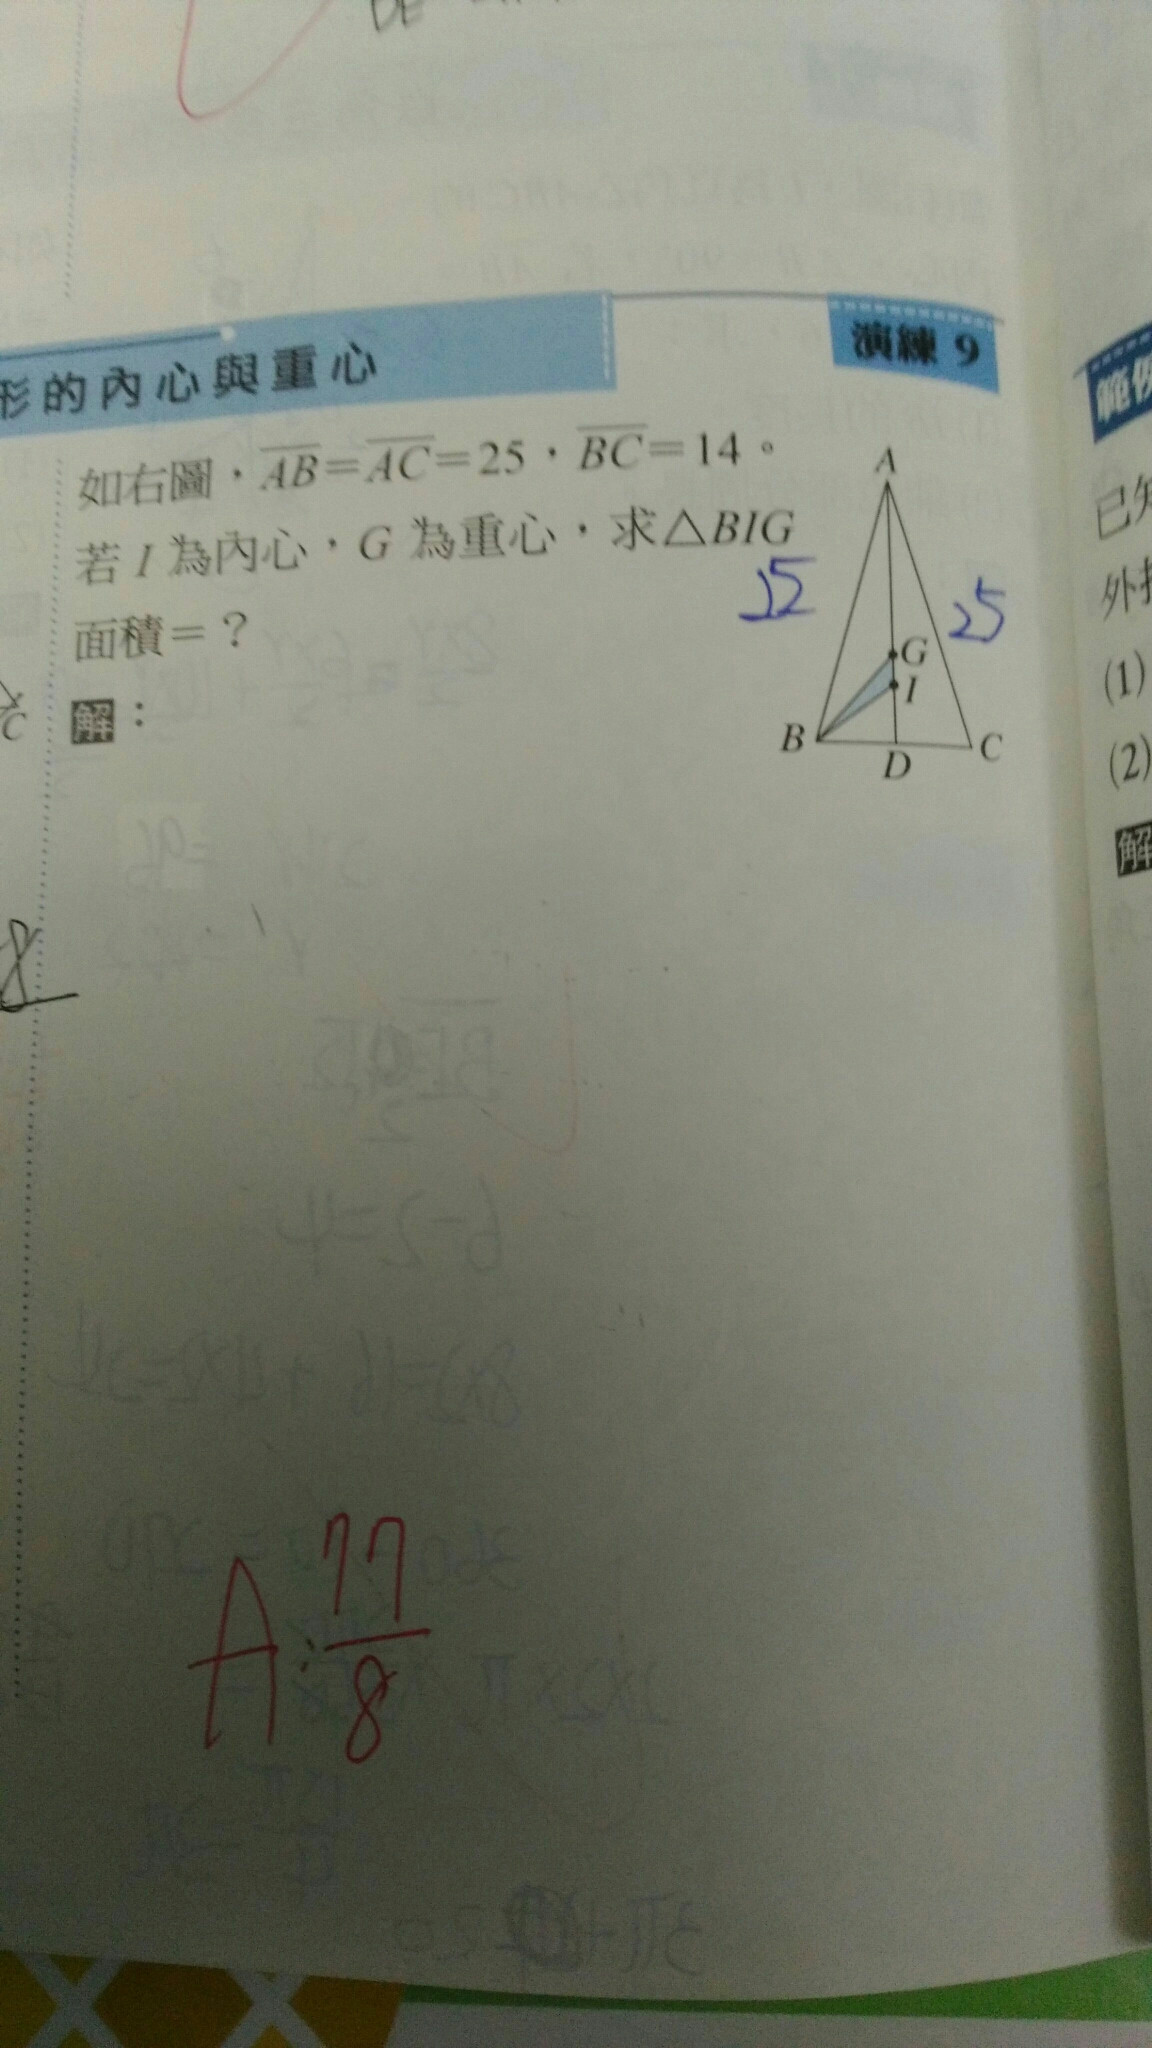 DE
形的內心與重心
演練 9
範例
如右圖，AB=AC=25，BC=14。
若 I 為內心，G 為重心，求△BIG
面積=？
解：
A
25
25
G
I
B
D
C
C
8
A: 77/8
已知
(1)
(2)
解